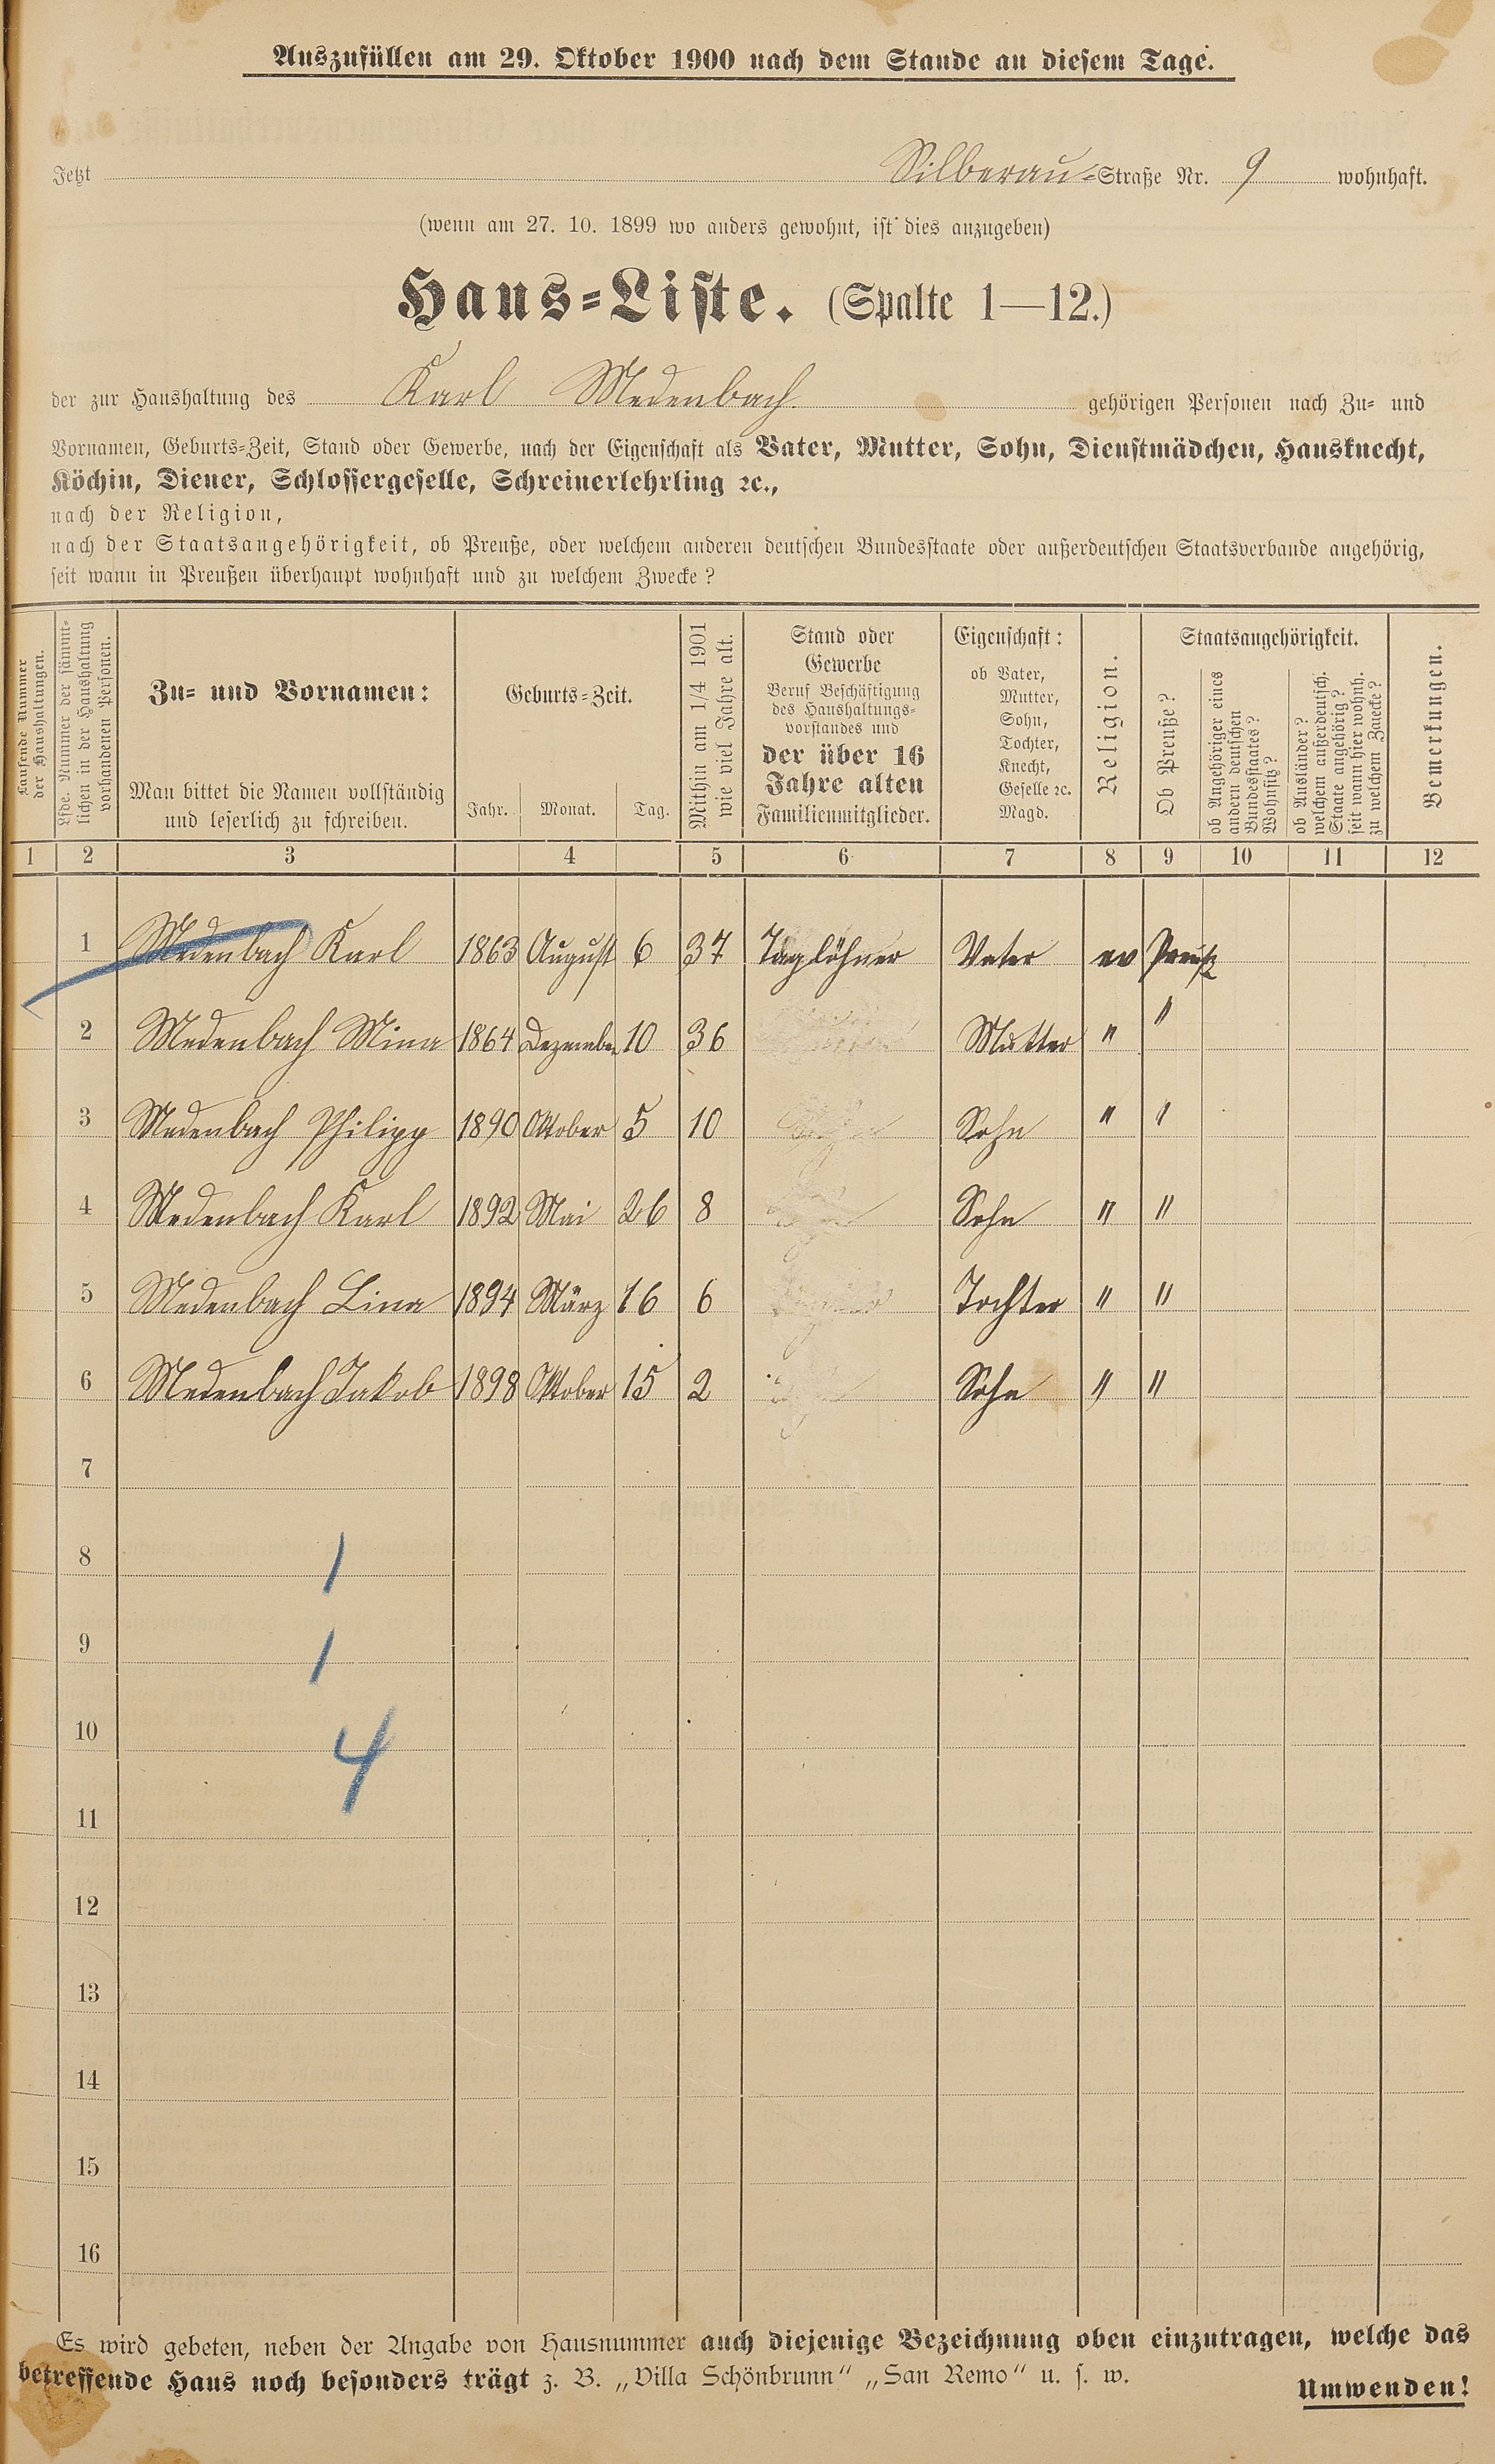 Auszufüllen am 29. Oktober 1900 nach dem Stande an diesem Tage.
Jetzt Silberau-Straße Nr. 9 wohnhaft.
(wenn am 27. 10. 1899 wo anders gewohnt, ist dies anzugeben)
Haus-Liste. (Spalte 1—12.)
der zur Haushaltung des Karl Medenbach gehörigen Personen nach Zu- und
Vornamen, Geburts-Zeit, Stand oder Gewerbe, nach der Eigenschaft als Vater, Mutter, Sohn, Dienstmädchen, Hausknecht,
Köchin, Diener, Schlossergeselle, Schreinerlehrling ꝛc.,
nach der Religion,
nach der Staatsangehörigkeit, ob Preuße, oder welchem anderen deutschen Bundesstaate oder außerdeutschen Staatsverbande angehörig,
seit wann in Preußen überhaupt wohnhaft und zu welchem Zwecke?
Laufende Nummer
der Haushaltungen.
Lfde. Nummer der sämmt-
lichen in der Haushaltung
vorhandenen Personen.
Zu- und Vornamen:
Man bittet die Namen vollständig
und leserlich zu schreiben.
Geburts-Zeit.
Jahr. Monat. Tag.
Mithin am 1/4 1901
wie viel Jahre alt.
Stand oder
Gewerbe
Beruf Beschäftigung
des Haushaltungs-
vorstandes und
der über 16
Jahre alten
Familienmitglieder.
Eigenschaft:
ob Vater,
Mutter,
Sohn,
Tochter,
Knecht,
Geselle ꝛc.
Magd.
Religion.
Staatsangehörigkeit.
Ob Preuße?
ob Angehöriger eines
andern deutschen
Bundesstaates?
Wohnsitz?
ob Ausländer?
welchem außerdeutsch.
Staate angehörig?
seit wann hier wohnh.
zu welchem Zwecke?
Bemerkungen.
1 2 3 4 5 6 7 8 9 10 11 12
1 Medenbach Karl 1863 August 6 37 Taglöhner Vater ev Preuße
2 Medenbach Mina 1864 Dezember 10 36 Mutter " "
3 Medenbach Philipp 1890 Oktober 5 10 Sohn " "
4 Medenbach Karl 1892 Mai 26 8 Sohn " "
5 Medenbach Lina 1894 März 16 6 Tochter " "
6 Medenbach Jakob 1898 Oktober 15 2 Sohn " "
7
8 1
9 1
10 4
11
12
13
14
15
16
Es wird gebeten, neben der Angabe von Hausnummer auch diejenige Bezeichnung oben einzutragen, welche das
betreffende Haus noch besonders trägt z. B. „Villa Schönbrunn“ „San Remo“ u. s. w.
Umwenden!